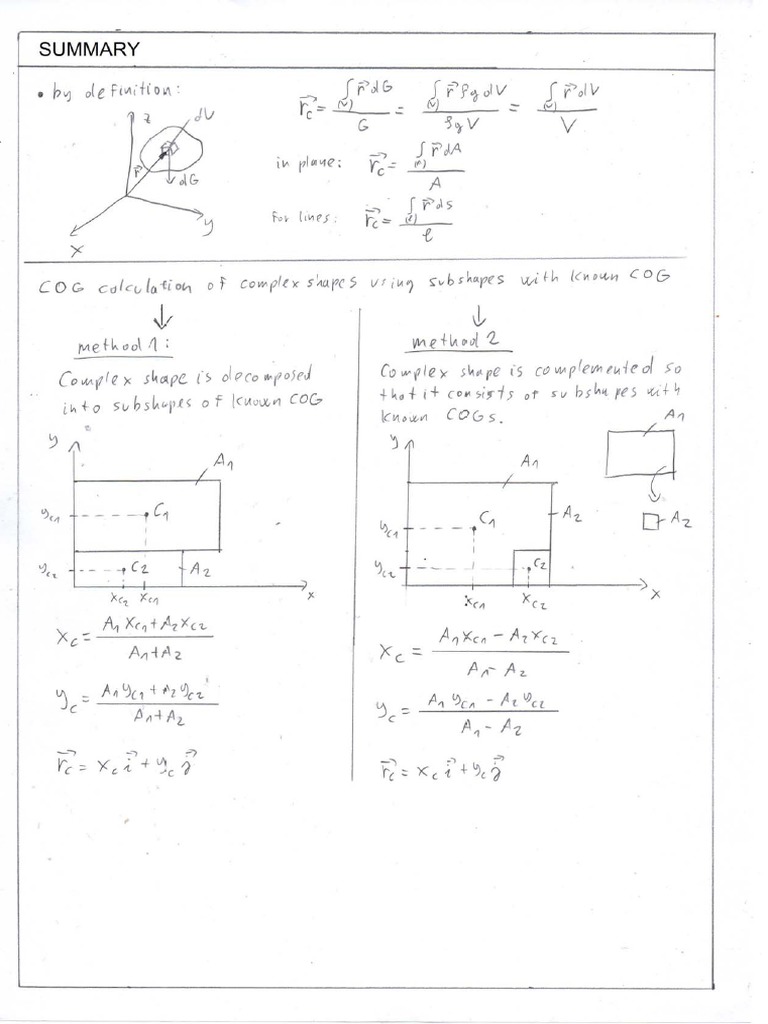 SUMMARY
• by definition:
z dV
r⃗ dG
x y
r⃗c = ∫(V) r⃗ dG / G = ∫(V) r⃗ ρg dV / ρgV = ∫(V) r⃗ dV / V
in plane: r⃗c = ∫(A) r⃗ dA / A
for lines: r⃗c = ∫(ℓ) r⃗ ds / ℓ
COG calculation of complex shapes using subshapes with known COG
method 1:
Complex shape is decomposed
into subshapes of known COG
y A1
yc1 C1
yc2 C2 A2
xc2 xc1 x
xc = A1 xc1 + A2 xc2 / A1 + A2
yc = A1 yc1 + A2 yc2 / A1 + A2
r⃗c = xc i⃗ + yc j⃗
method 2
Complex shape is complemented so
that it consists of subshapes with
known COGs.
A1
A2
y A1
yc1 C1 A2
yc2 C2
xc1 xc2 x
xc = A1 xc1 − A2 xc2 / A1 − A2
yc = A1 yc1 − A2 yc2 / A1 − A2
r⃗c = xc i⃗ + yc j⃗